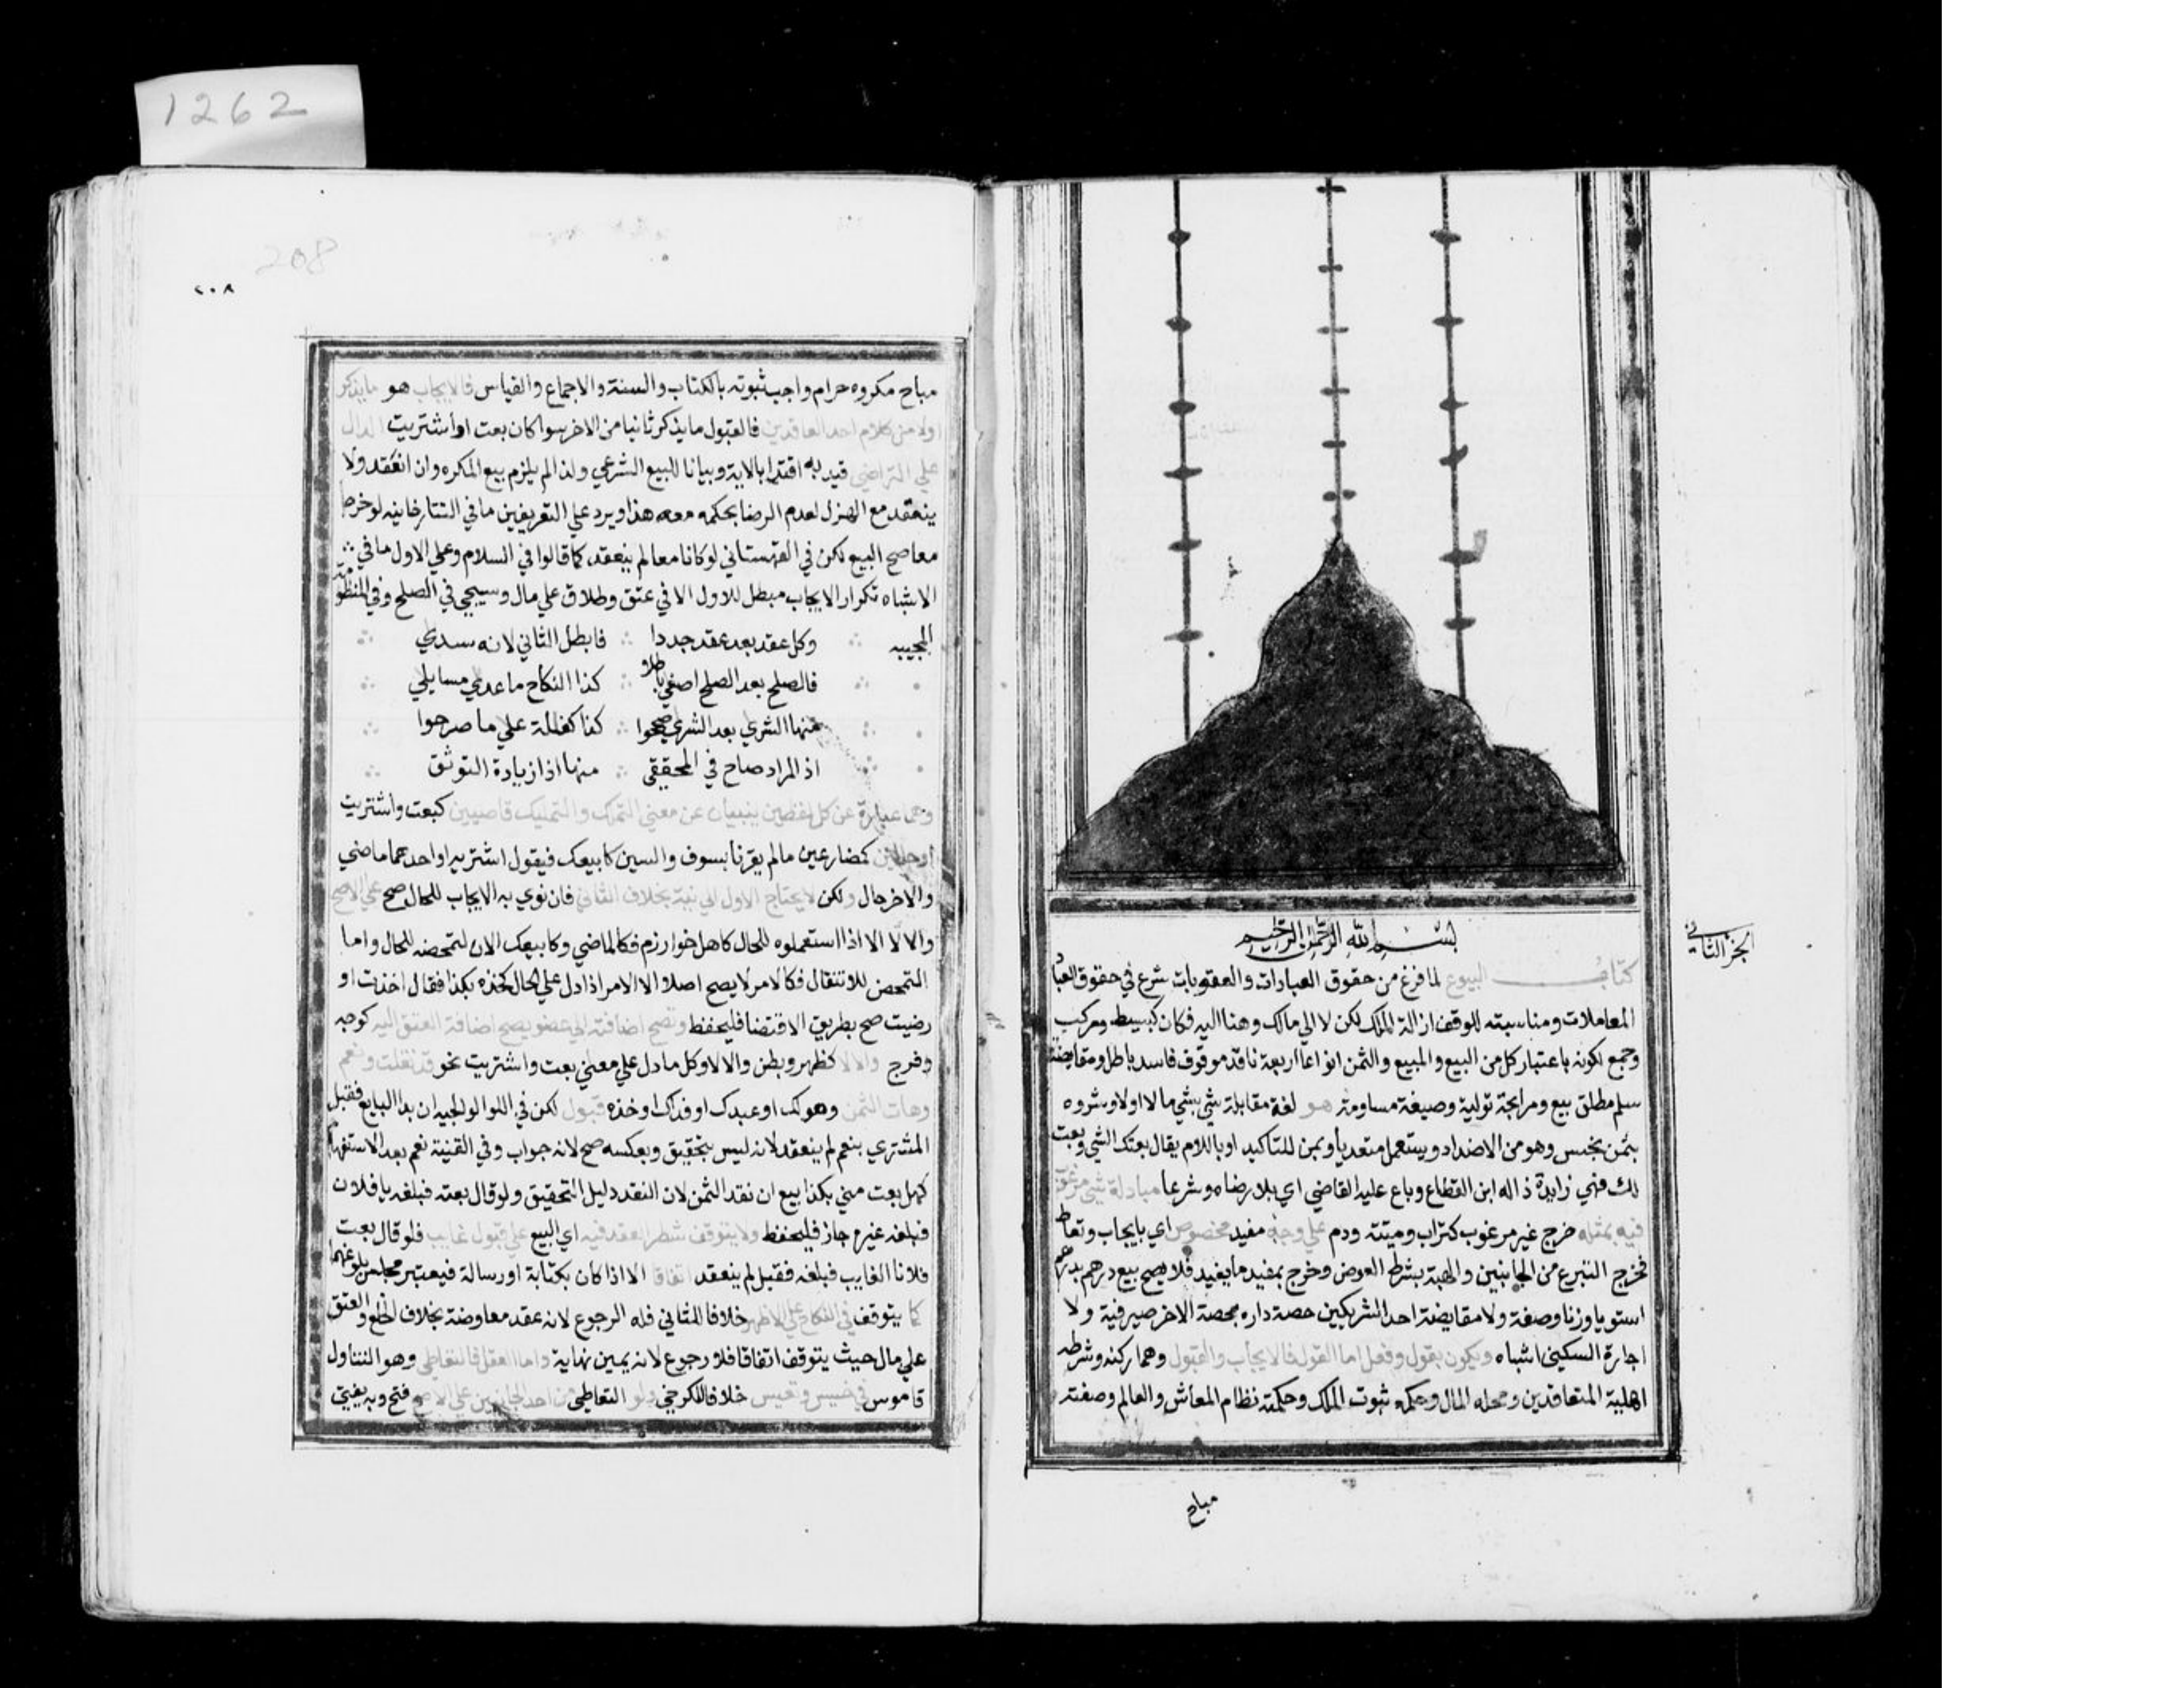 1262
الجزء الثاني
بسم الله الرحمن الرحيم
كتاب البيوع لما فرغ من حقوق العبادات والعقوبات شرع في حقوق العباد
المعاملات ومناسبته للوقف ازالة الملك لكن لا الي مالك وهنا اليه فكان كبسيط ومركب
وجمع لكونه باعتبار كل من البيع والمبيع والثمن انواعا اربعة نافذ موقوف فاسد باطل ومقايضة
سلم مطلق بيع ومرابحة تولية وضيعة مساومة هو لغة مقابلة شي بشي مالا اولا وشروه
بثمن بخس وهو من الاضداد ويستعمل متعديا وبمن للتاكيد او باللام يقال بعتك الشي وبعت
لك فهي زايدة ذاله ابن القطاع وباع عليه القاضي اي بلا رضاه وشرعا مبادلة شي مرغوب
فيه بمثله خرج غير مرغوب كتراب وميتة ودم علي وجه مفيد مخصوص اي بايجاب وتعاط
فخرج التبرع من الجانبين والهبة بشرط العوض وخرج بمفيد ما يفيد فلا يصح بيع درهم بدرهم
استويا وزنا وصفة ولا مقايضة احد الشريكين حصة داره بحصة الاخر صيرفية ولا
اجارة السكني اشباه ويكون بقول وفعل اما القول فالايجاب والقبول وهما ركنه وشرطه
اهلية المتعاقدين ومحله المال وحكمه ثبوت الملك وحكمته نظام المعاش والعالم وصفته
مباح
208
٢٠٨
مباح مكروه حرام واجب ثبوته بالكتاب والسنة والاجماع والقياس فالايجاب هو ما يذكر
اولا من كلام احد العاقدين فالقبول ما يذكر ثانيا من الاخر سوا كان بعت او اشتريت الدال
علي التراضي قيد به اقتدا بالاية وبيانا للبيع الشرعي ولذا لم يلزم بيع المكره وان انعقد ولا
ينعقد مع الهزل لعدم الرضا بحكمه معه هذا ويرد علي التعريفين ما في التتارخانيه لو خرجا
معا صح البيع لكن في القهستاني لو كانا معا لم ينعقد كما قالوا في السلام وعلي الاول ما في
الاشباه تكرار الايجاب مبطل للاول الا في عتق وطلاق علي مال وسيجي في الصلح وفي المنظومة
المحبيه وكل عقد بعد عقد جددا فابطل الثاني لانه سدي
فالصلح بعد الصلح اضحي باطلا كذا النكاح ما عدي مسايلي
منها الشري بعد الشري صححوا كذا كفالة علي ما صرحوا
اذ المراد صاح في المحققي منها اذا زيادة التوثق
وهما عبارة عن كل لفظين ينبيان عن معني التملك والتمليك ماضيين كبعت واشتريت
او حالين كمضارعين ما لم يقرنا بسوف والسين كابيعك فيقول اشتريه او احدهما ماضي
والاخر حال ولكن لا يحتاج الاول الي نية بخلاف الثاني فان نوي به الايجاب للحال صح علي الاصح
والا لا الا اذا استعملوه للحال كاهل خوارزم فكالماضي وكابيعك الان لتمحضه للحال واما
التمحض للانتقال فكالامر لا يصح اصلا الا الامر اذا دل علي الحال كخذه بكذا فقال اخذت او
رضيت صح بطريق الاقتضا فليحفظ وتصح اضافته الي عضو يصح اضافة العتق اليه كوجه
وفرج والا لا كظهر وبطن والا لا وكل ما دل علي معني بعت واشتريت نحو قد فعلت ونعم
وهات الثمن وهو لك او عبدك او فداك او خذه قبول لكن في الولوالجيه ان بدا البايع فقبل
المشتري بنعم لم ينعقد لانه ليس بتحقيق وبعكسه صح لانه جواب وفي القنية نعم بعد الاستفهام
كهل بعت مني بكذا بيع ان نقد الثمن لان النقد دليل التحقيق ولو قال بعته فبلغه يا فلان
فبلغه غيره جاز فليحفظ ولا يتوقف شطر العقد فيه اي البيع علي قبول غايب فلو قال بعت
فلانا الغايب فبلغه فقبل لم ينعقد اتفاقا الا اذا كان بكتابة او رسالة فيعتبر مجلس بلوغها
كما يتوقف في النكاح علي الاظهر خلافا للثاني فله الرجوع لانه عقد معاوضة بخلاف الخلع والعتق
علي مال حيث يتوقف اتفاقا فلا رجوع لانه يمين نهاية واما الفعل فالتعاطي وهو التناول
قاموس في خسيس ونفيس خلافا للكرخي ولو التعاطي من احد الجانبين علي الاصح فتح وبه يفتي